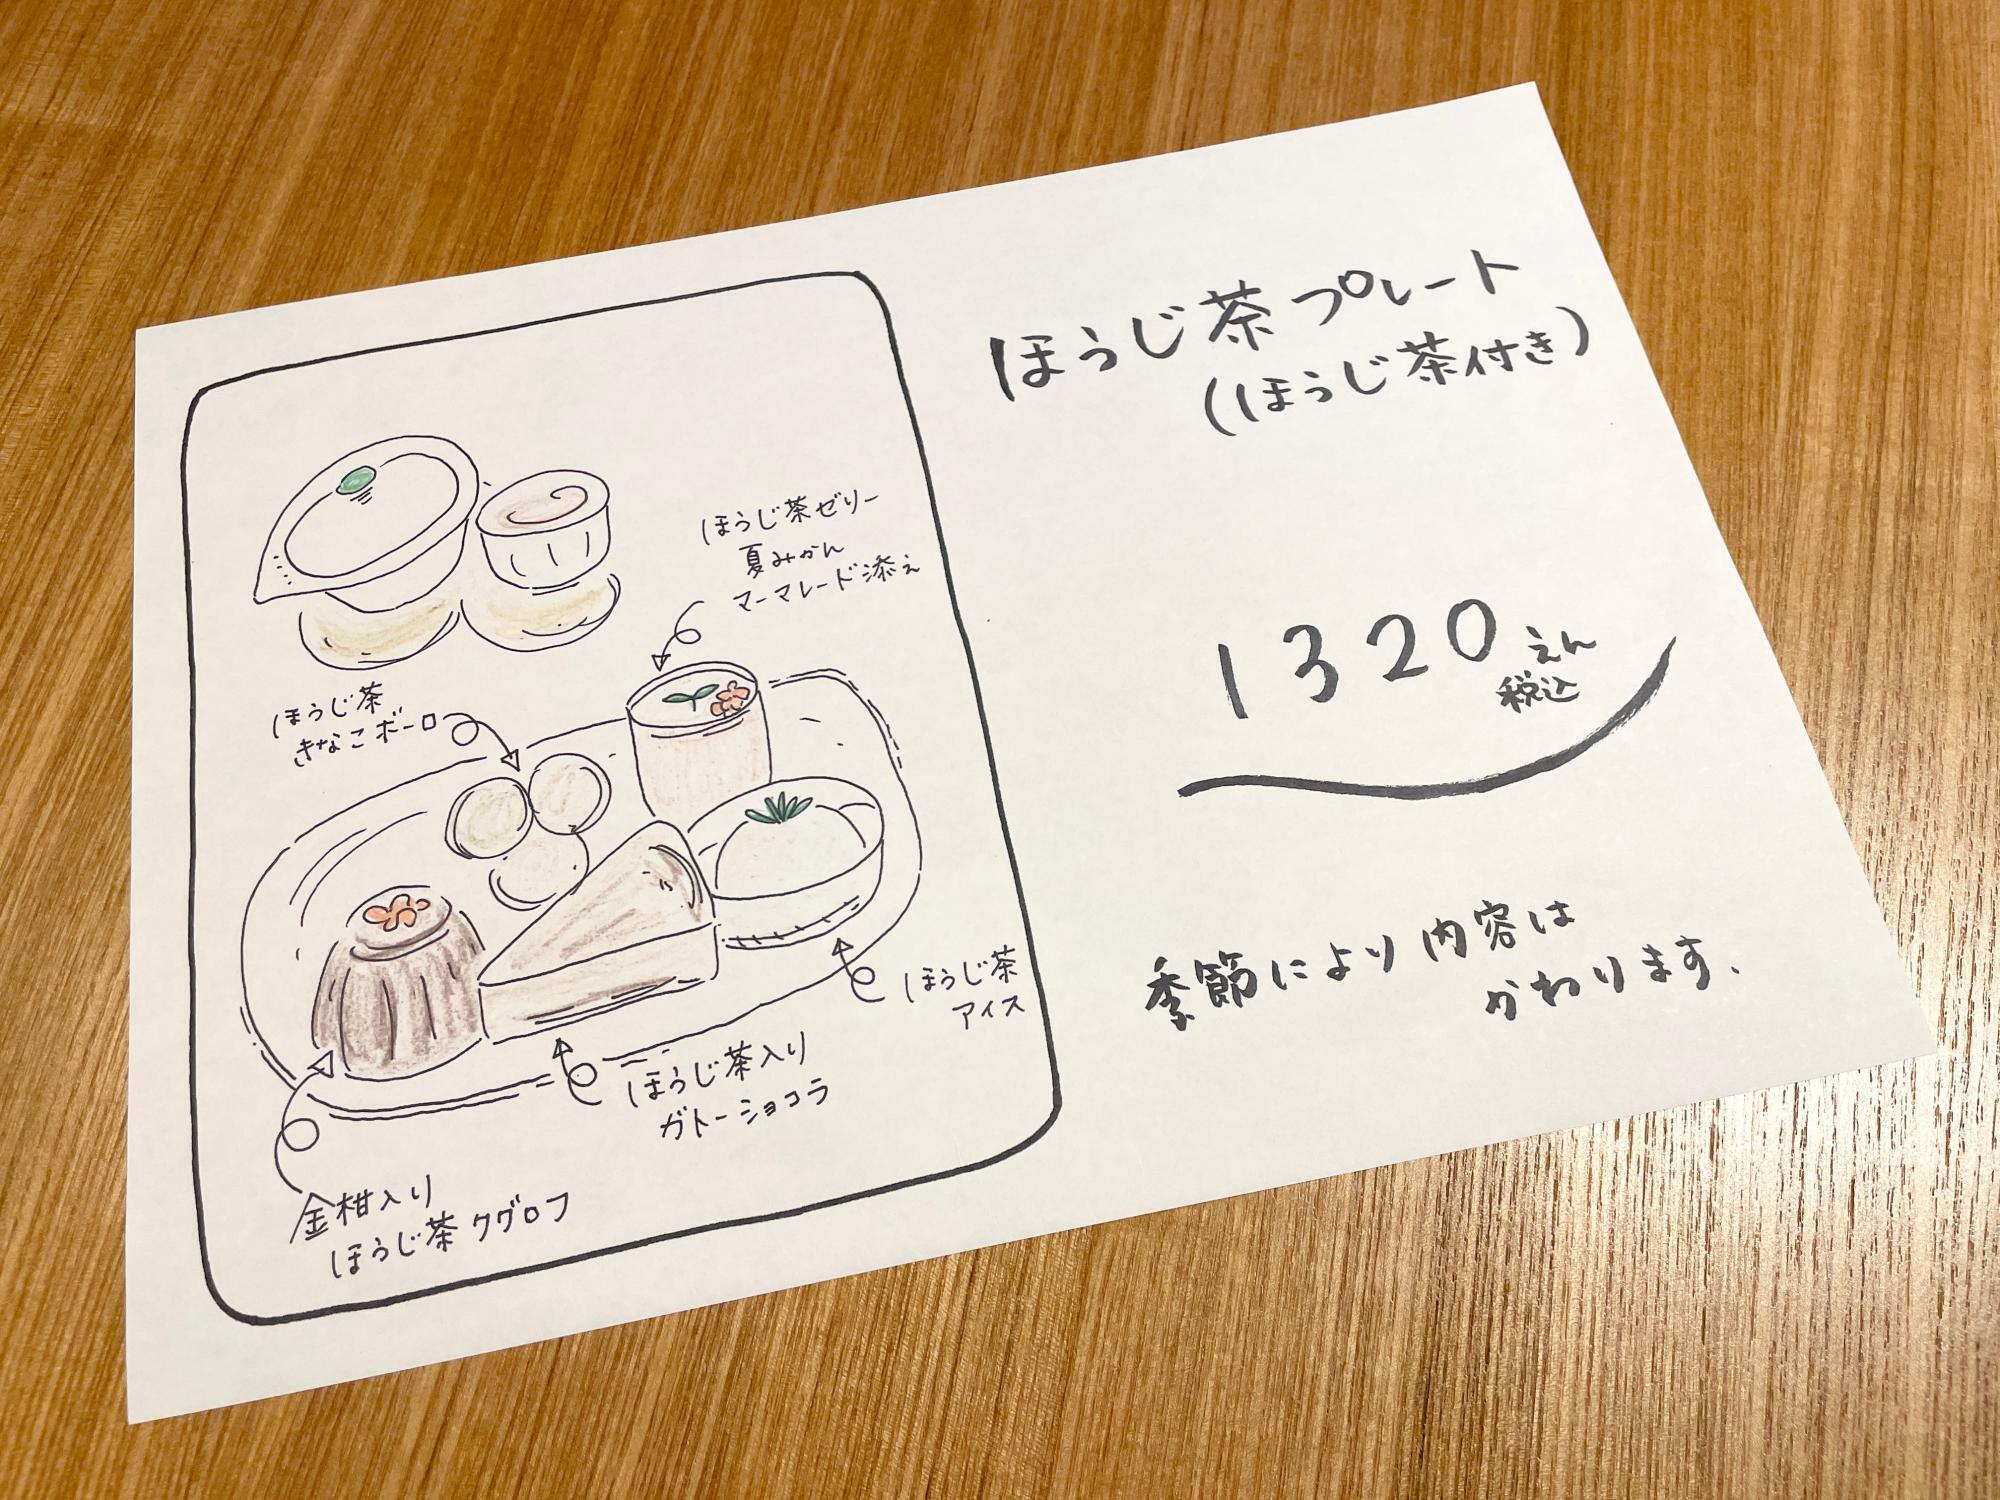 ほうじ茶プレート
(ほうじ茶付き)
1320えん
税込
季節により内容は
かわります.
ほうじ茶ゼリー
夏みかん
マーマレード添え
ほうじ茶
きなこボーロ
ほうじ茶
アイス
ほうじ茶入り
ガトーショコラ
金柑入り
ほうじ茶クグロフ